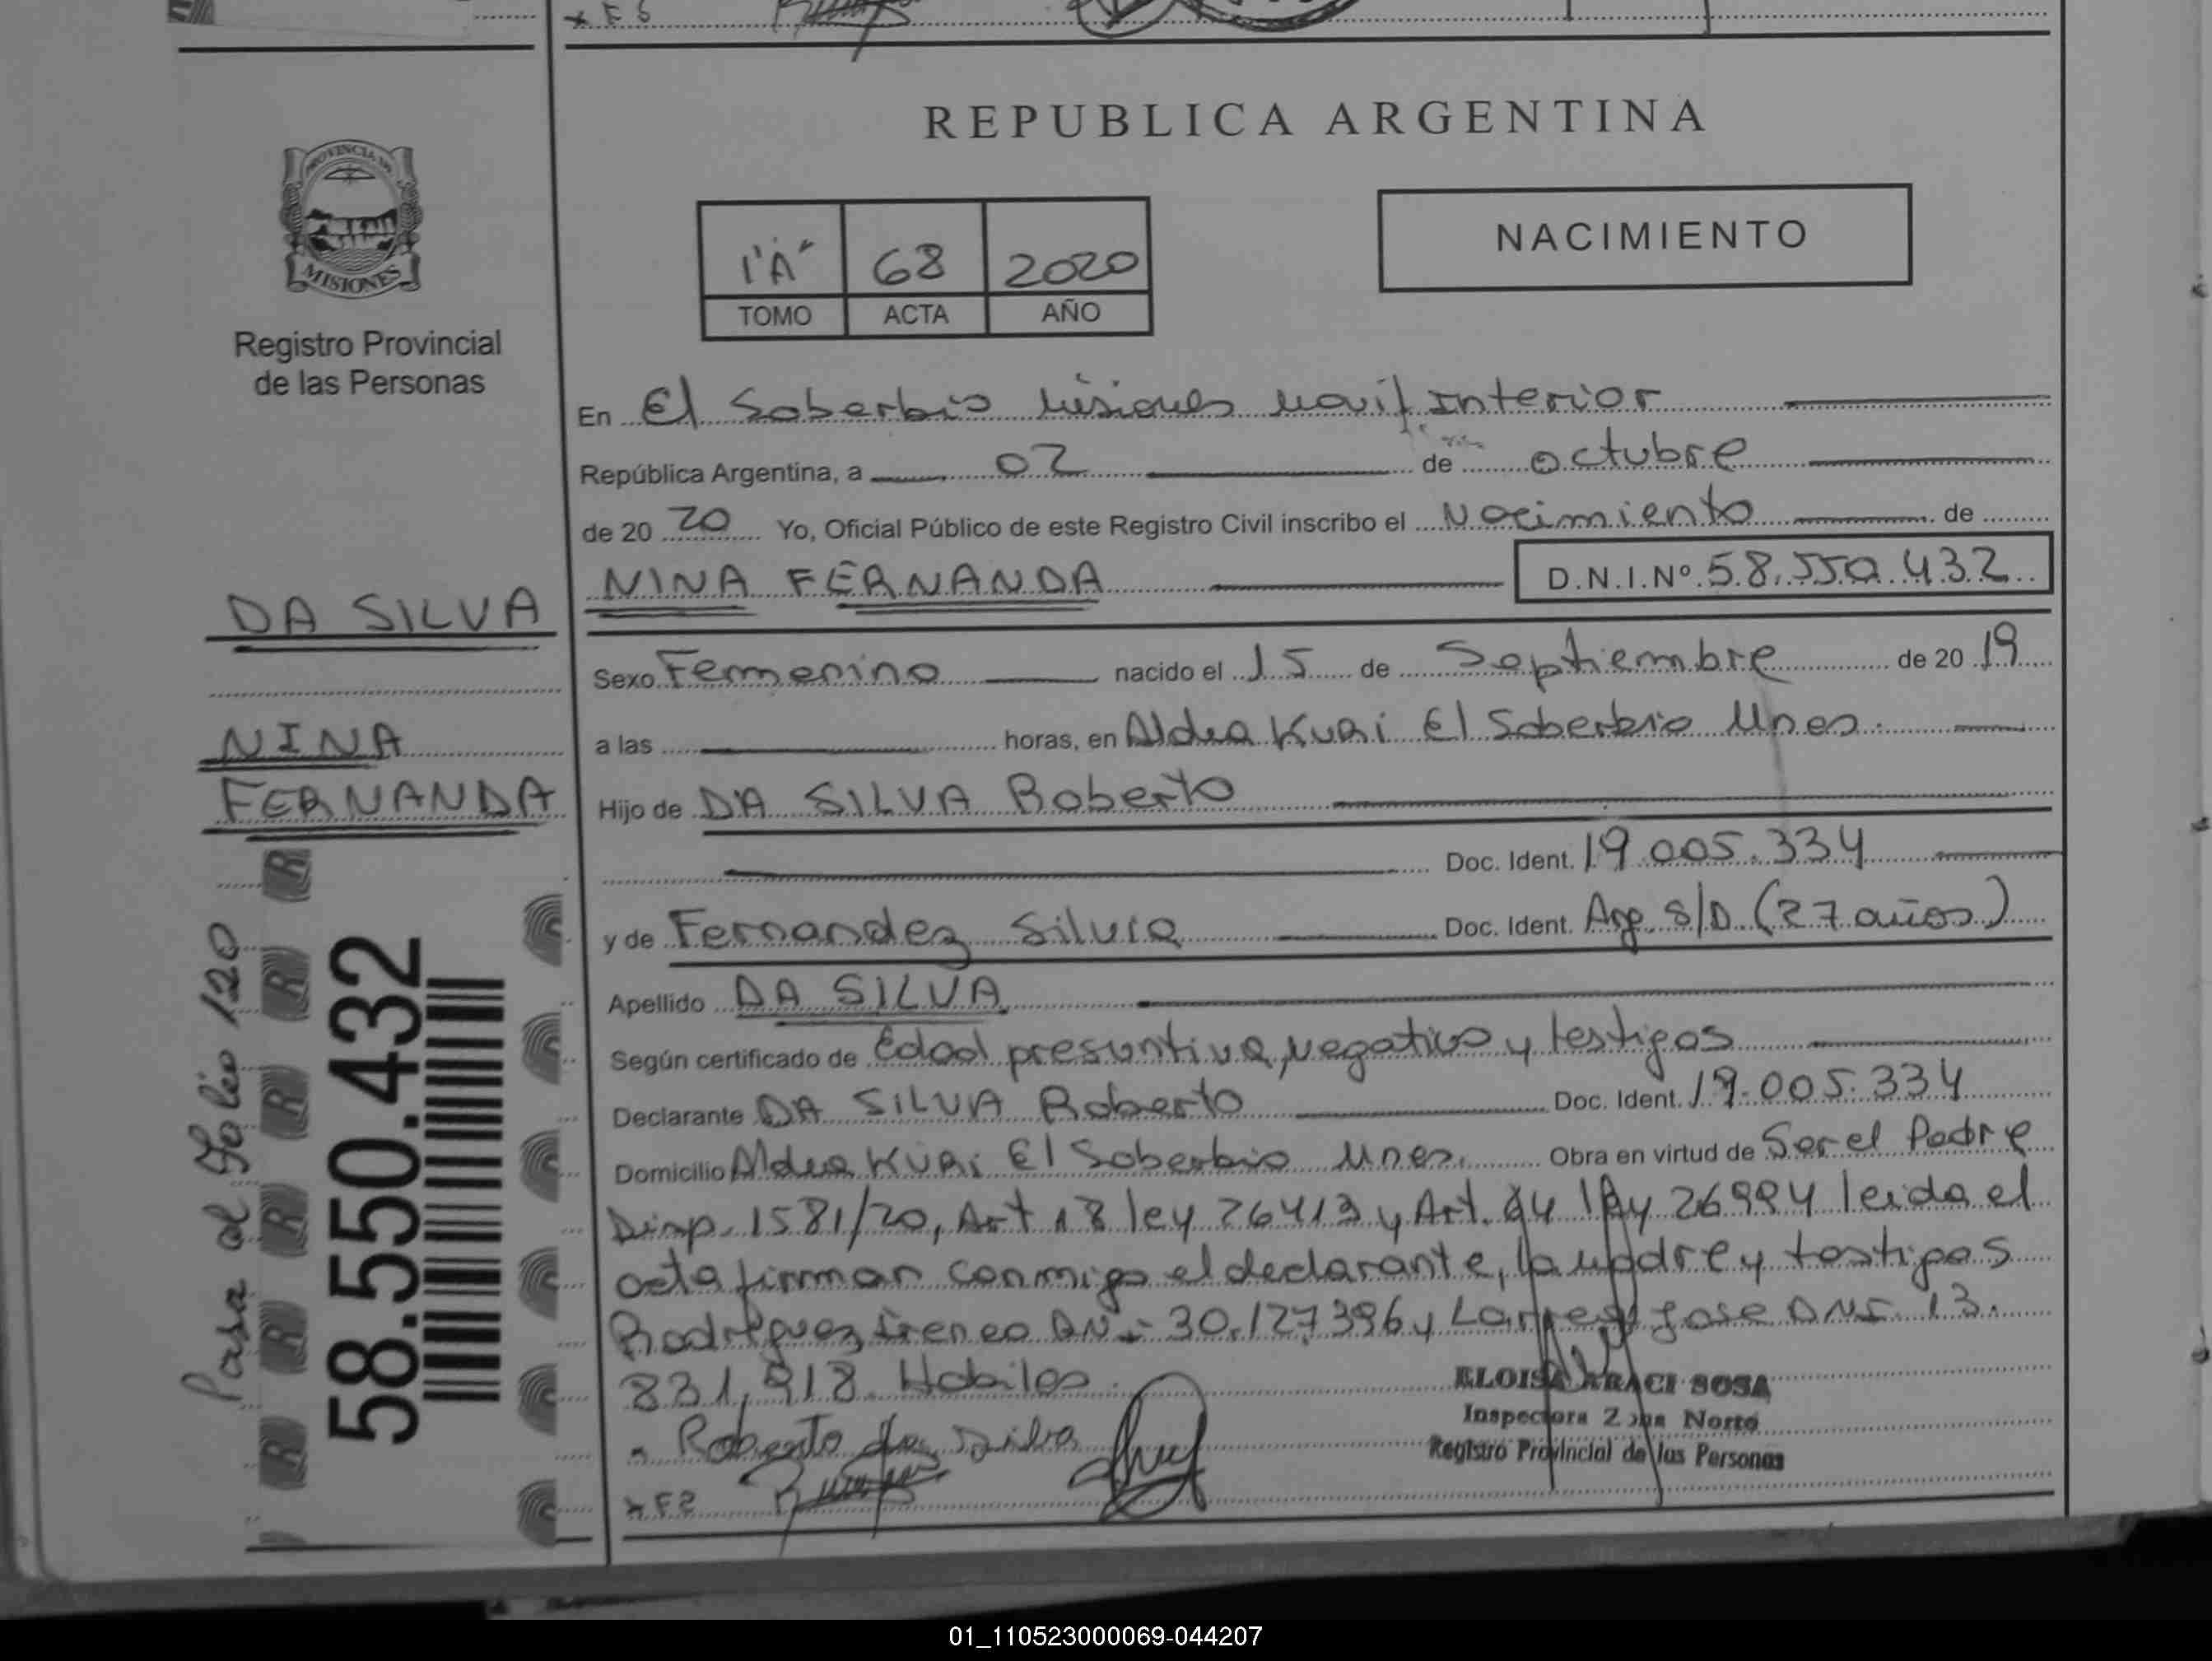 REPUBLICA ARGENTINA
PROVINCIA DE
MISIONES
Registro Provincial
de las Personas
1 "A" 68 2020
TOMO ACTA AÑO
NACIMIENTO
En El Soberbio Misiones movil Interior
República Argentina, a 02 de octubre
de 20 20 Yo, Oficial Público de este Registro Civil inscribo el Nacimiento de
NINA FERNANDA D.N.I.Nº 58.550.432
DA SILVA
NINA
FERNANDA
Sexo Femenino nacido el 15 de Septiembre de 20 19
a las horas, en Aldea Kuri El Soberbio Mnes.
Hijo de DA SILVA Roberto
Doc. Ident. 19.005.334
y de Fernandez Silvia Doc. Ident. Arg. S/D. (27 años)
Apellido DA SILVA
Según certificado de Edad presuntiva, negativo y testigos
Declarante DA SILVA Roberto Doc. Ident. 19.005.334
Domicilio Aldea Kuri El Soberbio Mnes. Obra en virtud de Ser el Padre
Disp. 1581/20, Art 18 ley 26413 y Art. 64 ley 26994 leida el
acta firman conmigo el declarante, la madre y testigos
Rodriguez Ireneo DNI 30.127396 y Jose DNI. 13.
831.918. Habiles
Roberto da Silva
ELOISA ARACI SOSA
Inspectora Zona Norte
Registro Provincial de las Personas
Pasa al Folio 120
58.550.432
01_110523000069-044207